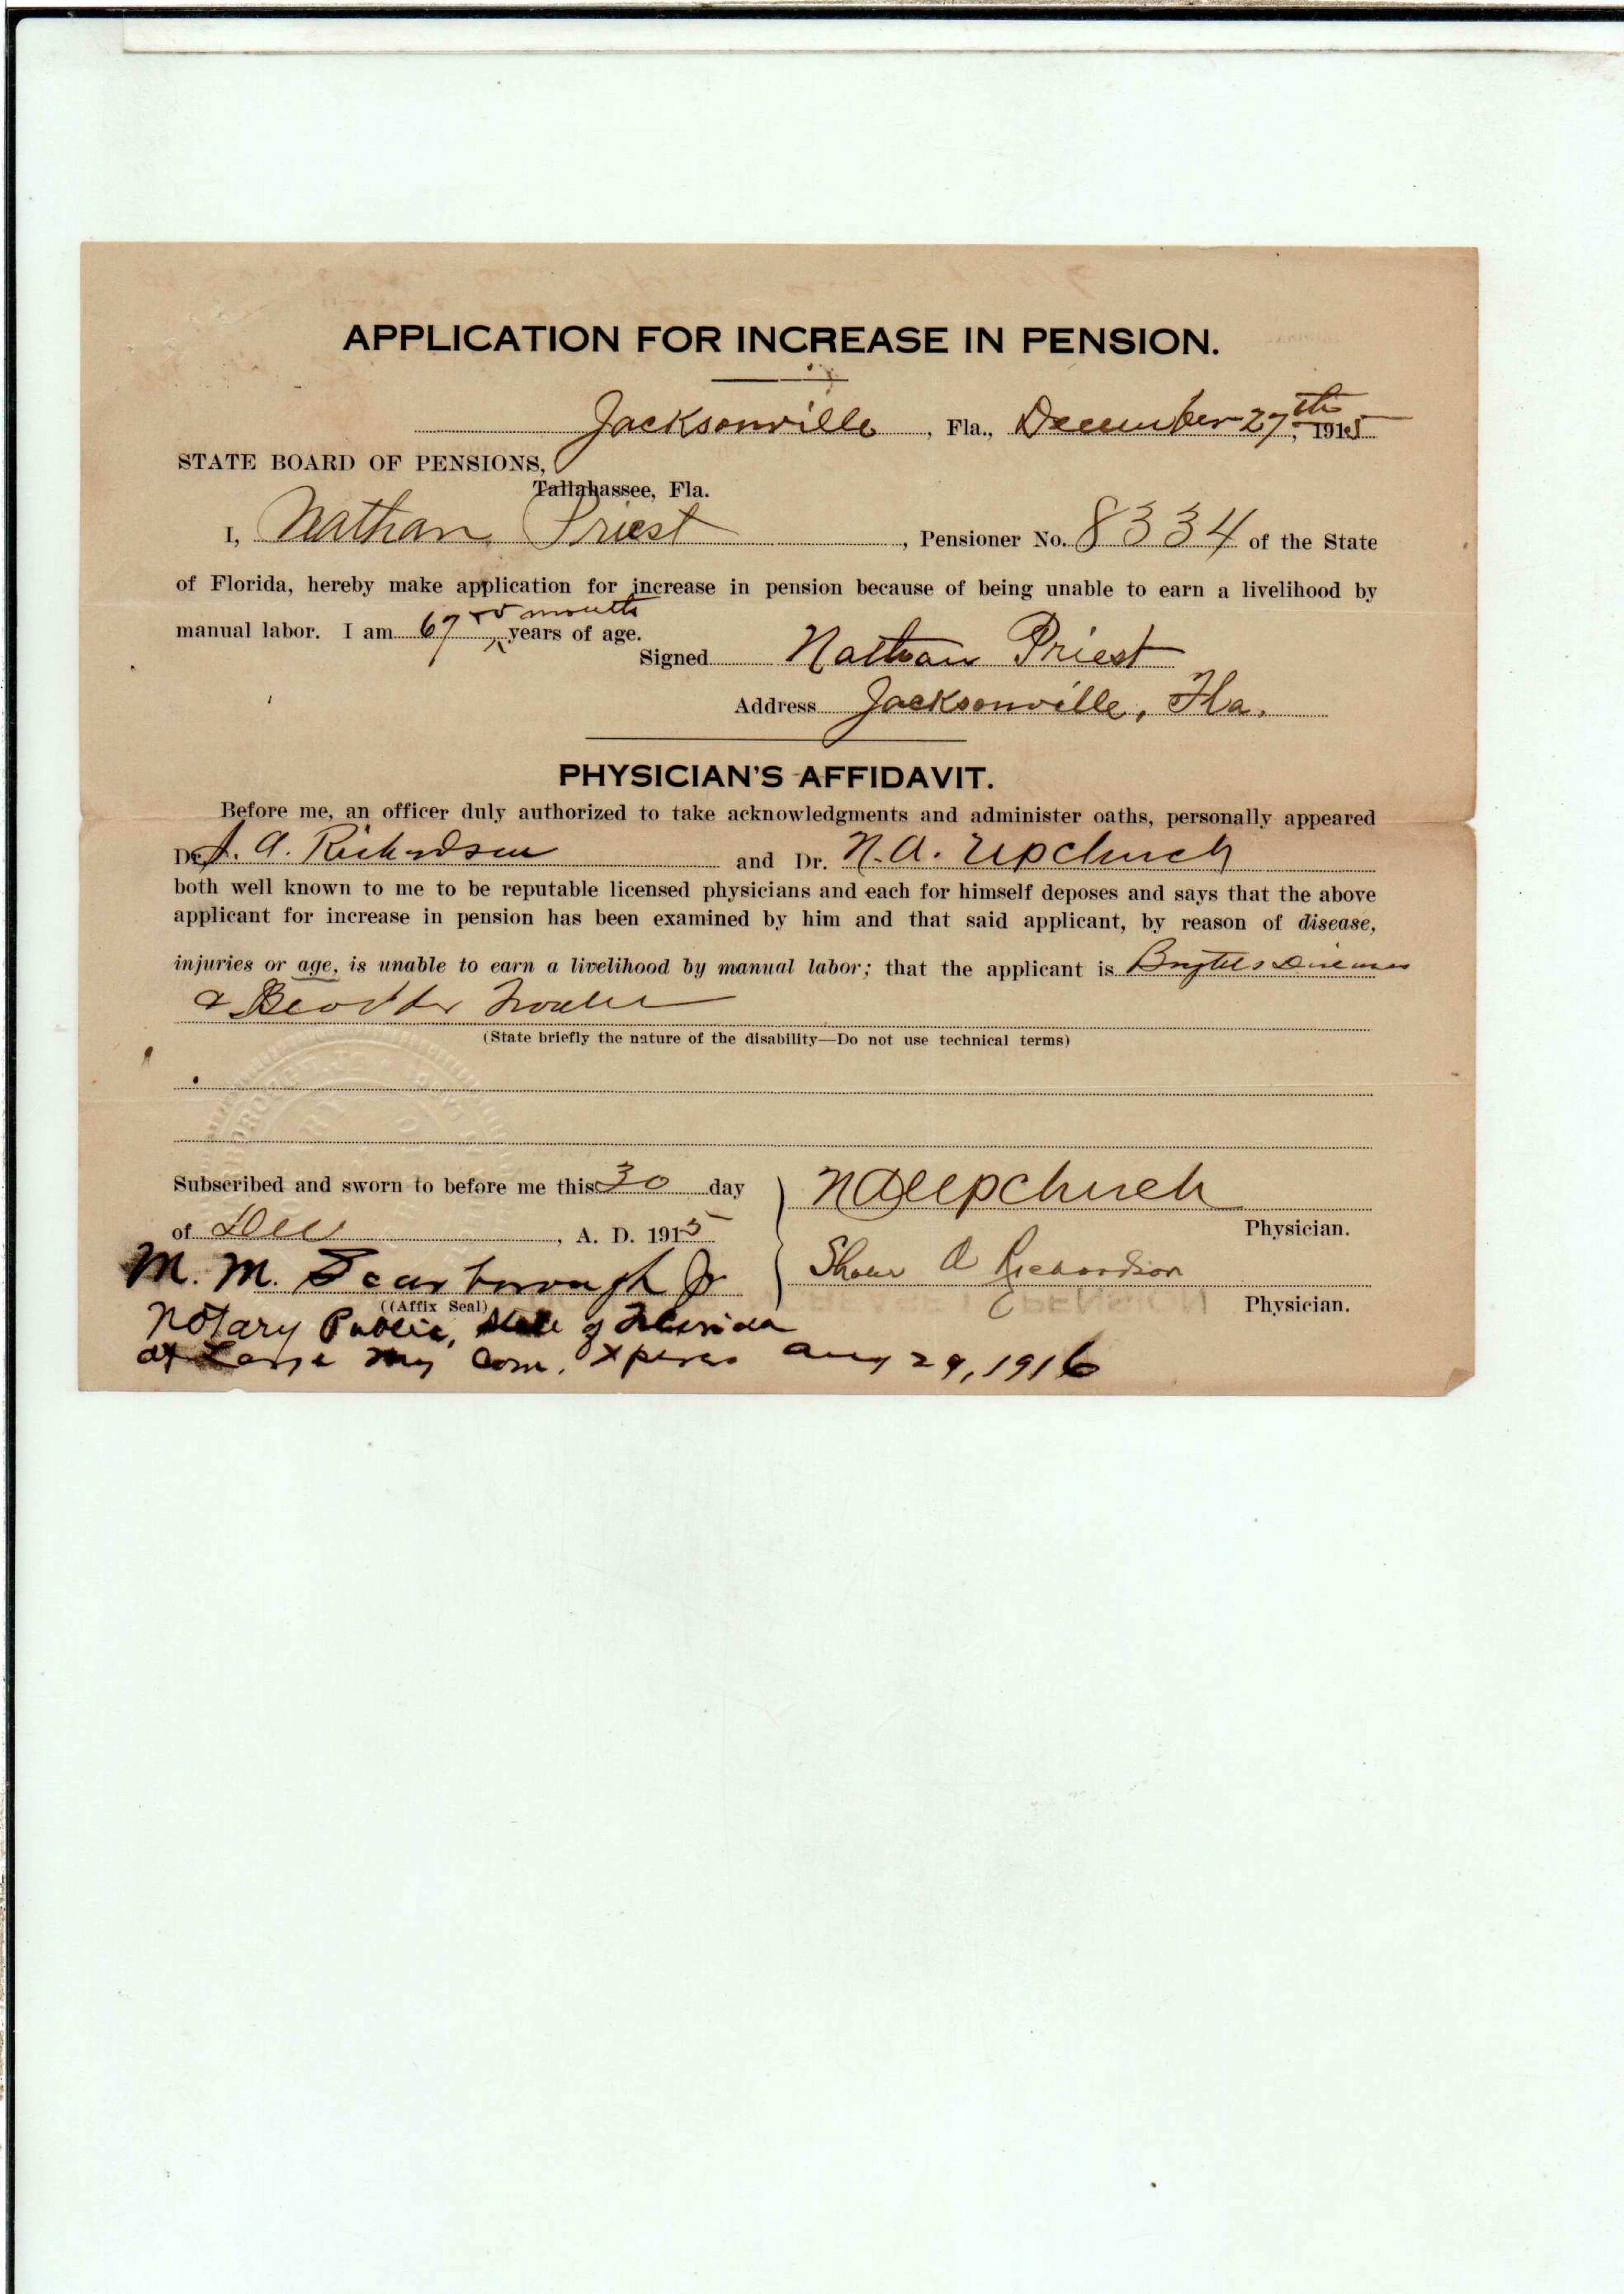 APPLICATION FOR INCREASE IN PENSION.
Jacksonville, Fla., December 27th, 1915
STATE BOARD OF PENSIONS,
Tallahassee, Fla.
I, Nathan Priest, Pensioner No. 8334 of the State
of Florida, hereby make application for increase in pension because of being unable to earn a livelihood by
months
manual labor. I am 67 years of age.
Signed Nathan Priest
Address Jacksonville, Fla.
PHYSICIAN'S AFFIDAVIT.
Before me, an officer duly authorized to take acknowledgments and administer oaths, personally appeared
Dr. S. A. Richardson and Dr. N. A. Upchurch
both well known to me to be reputable licensed physicians and each for himself deposes and says that the above
applicant for increase in pension has been examined by him and that said applicant, by reason of disease,
injuries or age, is unable to earn a livelihood by manual labor; that the applicant is Brights Disease
& Bladder Trouble
(State briefly the nature of the disability—Do not use technical terms)
Subscribed and sworn to before me this 30 day
of Dec, A. D. 1915
N A Upchurch
Physician.
M. M. Scarborough Jr
A Richardson
Physician.
((Affix Seal)
Notary Public, State of Florida
at Large My Com. Xpires Aug 29, 1916